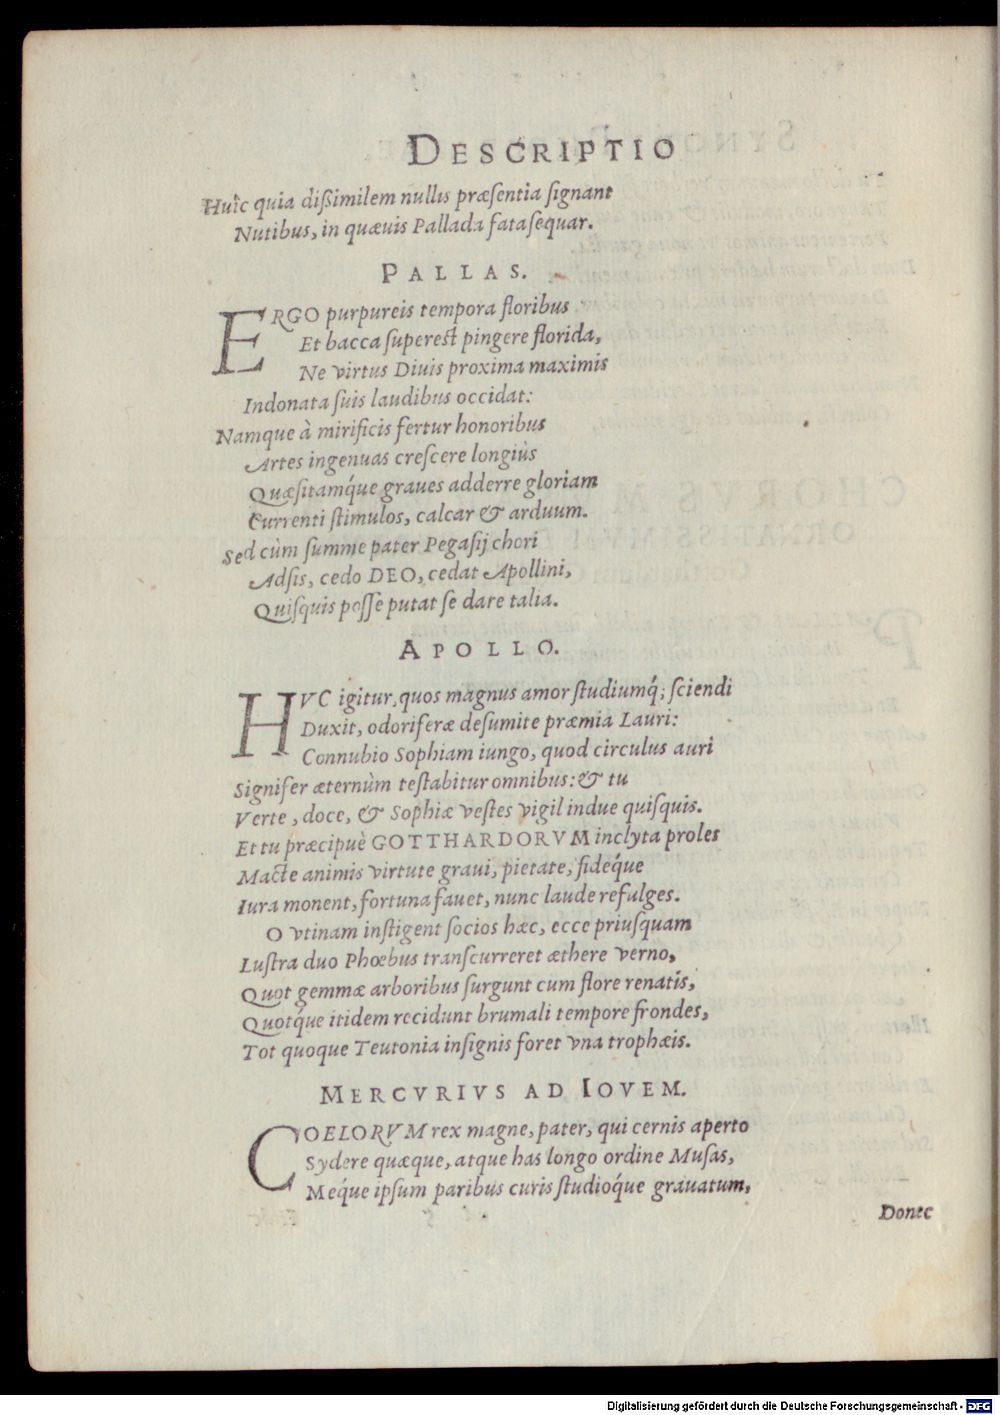 DESCRIPTIO
Huic quia dißimilem nullis præsentia signant
Nutibus, in quævis Pallada fata sequar.
PALLAS.
ERGO purpureis tempora floribus
Et bacca superest pingere florida,
Ne virtus Divis proxima maximis
Indonata suis laudibus occidat:
Namque à mirificis fertur honoribus
Artes ingenuas crescere longiùs
Quæsitamq́ue graves adderre gloriam
Currenti stimulos, calcar & arduum.
Sed cùm summe pater Pegasij chori
Adsis, cedo DEO, cedat Apollini,
Quisquis posse putat se dare talia.
APOLLO.
HVC igitur, quos magnus amor studiumq́; sciendi
Duxit, odoriferæ desumite præmia Lauri:
Connubio Sophiam iungo, quod circulus auri
Signifer æternùm testabitur omnibus: & tu
Verte, doce, & Sophiæ vestes vigil indue quisquis.
Et tu præcipuè GOTTHARDORVM inclyta proles
Macte animis virtute gravi, pietate, fideq́ue
Iura monent, fortuna favet, nunc laude refulges.
O vtinam instigent socios hæc, ecce priusquam
Lustra duo Phœbus transcurreret æthere verno,
Quot gemmæ arboribus surgunt cum flore renatis,
Quotq́ue itidem recidunt brumali tempore frondes,
Tot quoque Teutonia insignis foret vna trophæis.
MERCVRIVS AD IOVEM.
COELORVM rex magne, pater, qui cernis aperto
Sydere quæque, atque has longo ordine Musas,
Meq́ue ipsum paribus curis studioq́ue gravatum,
Donec
Digitalisierung gefördert durch die Deutsche Forschungsgemeinschaft - DFG